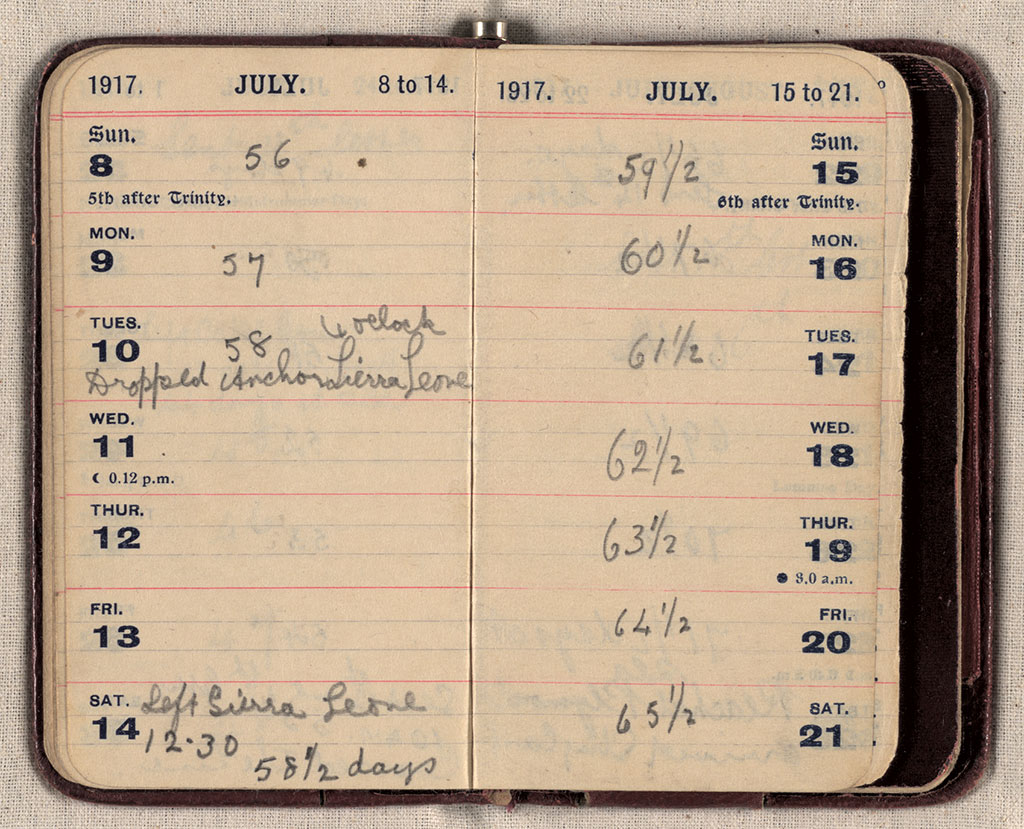 1917. JULY. 8 to 14.
Sun.
8 56
5th after Trinity.
MON.
9 57
TUES. oclock
10 58
Dropped Anchor Sierra Leone
WED.
11
☾ 0.12 p.m.
THUR.
12
FRI.
13
SAT. Left Sierra Leone
14 12.30
58 1/2 days
1917. JULY. 15 to 21.
Sun.
59 1/2 15
6th after Trinity.
MON.
60 1/2 16
TUES.
61 1/2 17
WED.
62 1/2 18
THUR.
63 1/2 19
● 3.0 a.m.
FRI.
64 1/2 20
SAT.
65 1/2 21